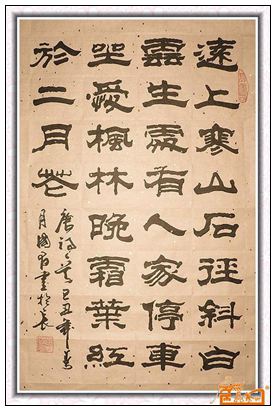 遠上寒山石徑斜白
雲生處有人家停車
坐愛楓林晚霜葉紅
於二月花
唐詩一首己丑年
月國有書於長